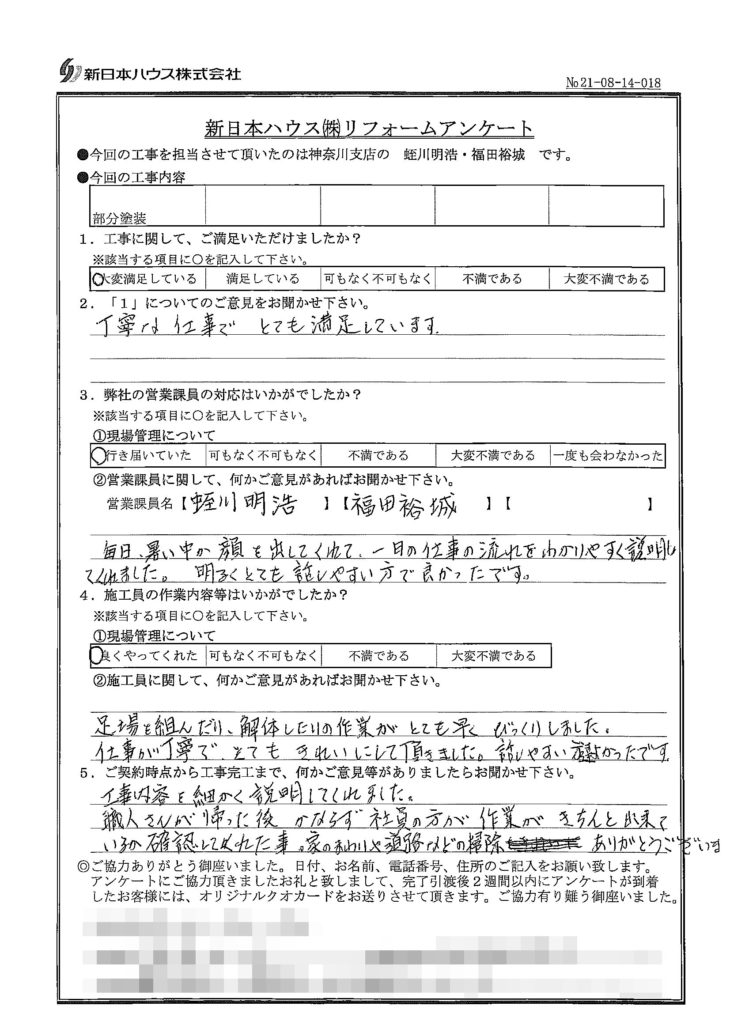 新日本ハウス株式会社
№21-08-14-018
新日本ハウス㈱リフォームアンケート
●今回の工事を担当させて頂いたのは神奈川支店の 蛭川明浩・福田裕城 です。
●今回の工事内容
部分塗装
1．工事に関して、ご満足いただけましたか？
※該当する項目に○を記入して下さい。
大変満足している 満足している 可もなく不可もなく 不満である 大変不満である
2．「1」についてのご意見をお聞かせ下さい。
丁寧な仕事で とても満足しています。
3．弊社の営業課員の対応はいかがでしたか？
※該当する項目に○を記入して下さい。
①現場管理について
行き届いていた 可もなく不可もなく 不満である 大変不満である 一度も会わなかった
②営業課員に関して、何かご意見があればお聞かせ下さい。
営業課員名【蛭川明浩 】【福田裕城 】【 】
毎日、暑い中が顔を出してくれて、一日の仕事の流れをわかりやすく説明し
てくれました。 明るくとても話しやすい方で良かったです。
4．施工員の作業内容等はいかがでしたか？
※該当する項目に○を記入して下さい。
①現場管理について
良くやってくれた 可もなく不可もなく 不満である 大変不満である
②施工員に関して、何かご意見があればお聞かせ下さい。
足場を組んだり、解体したりの作業がとても早く びっくりしました。
仕事が丁寧で、とても きれいにして頂きました。話しやすい かったです
5．ご契約時点から工事完工まで、何かご意見等がありましたらお聞かせ下さい。
工事内容を細かく説明してくれました。
職人さんが帰った後 かならず社員の方が 作業が きちんと出来て
いるか確認してくれた事。家のまわりや道路などの掃除 ありがとうございま
◎ご協力ありがとう御座いました。日付、お名前、電話番号、住所のご記入をお願い致します。
アンケートにご協力頂きましたお礼と致しまして、完了引渡後2週間以内にアンケートが到着
したお客様には、オリジナルクオカードをお送りさせて頂きます。ご協力有り難う御座いました。